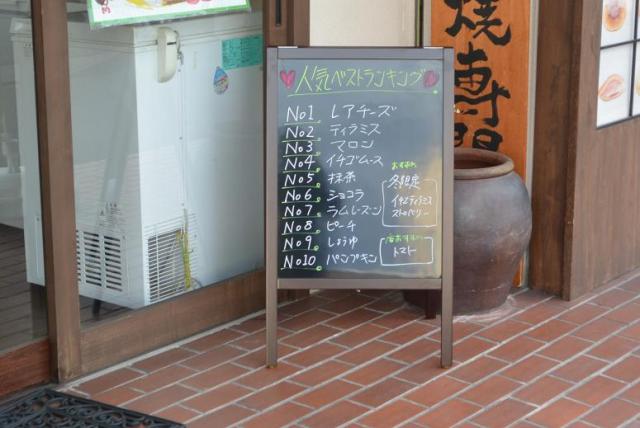 人気ベストランキング
No1 レアチーズ
No2 ティラミス
No3 マロン
No4 イチゴムース
No5 抹茶
No6 ショコラ
No7 ラムレーズン
No8 ピーチ
No9 しょうゆ
No10 パンプキン
おすすめ
冬限定
ストロベリー
トマト
焼専門